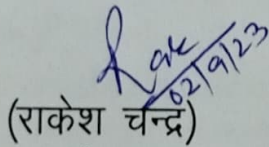 02/9/23
(राकेश चन्द्र)